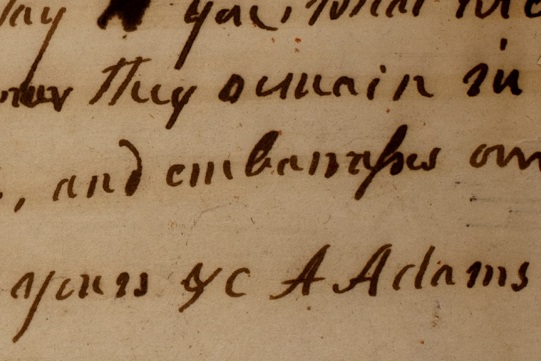 you, what
they remain in
, and embarrasses our
yours &c A Adams